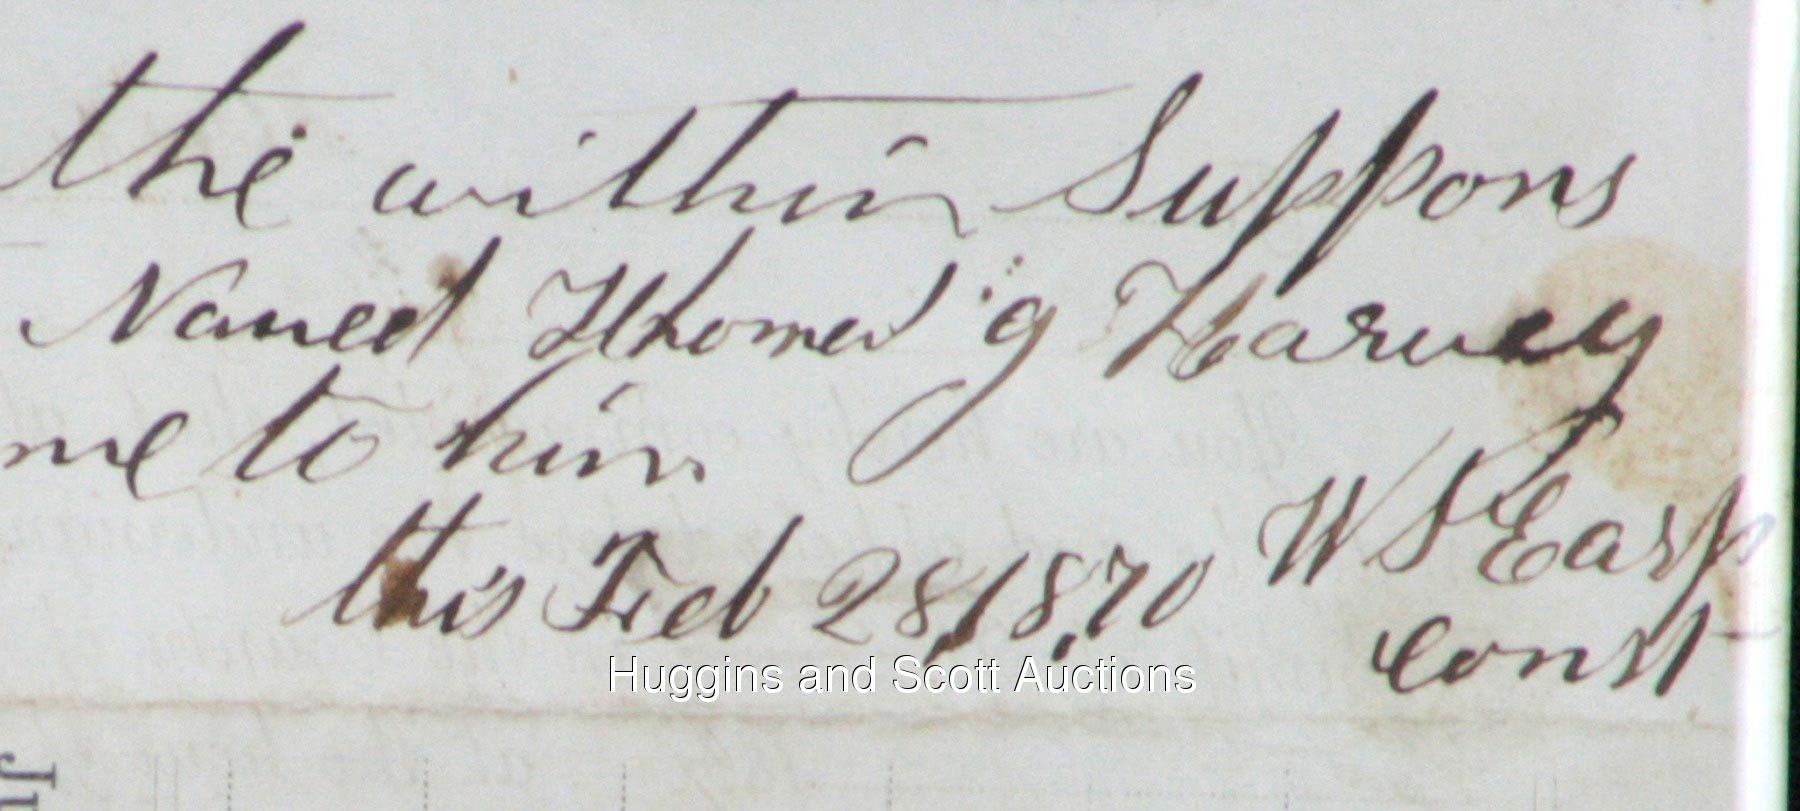 the within Suppons
Named Thomas G Harvey
me to him
this Feb 28, 1870 W S Earp
Const
Huggins and Scott Auctions
Ju